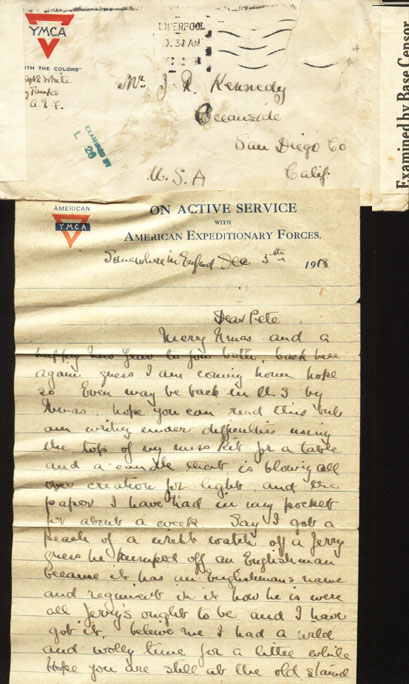 YMCA
"WITH THE COLORS"
White
A.E.F.
LIVERPOOL
.30 AM
EXAMINED BY
L 26
Mr J. R. Kennedy
Oceanside
San Diego Co
Calif.
U.S.A
Examined by Base Censor
AMERICAN
Y.M.C.A
ON ACTIVE SERVICE
WITH
AMERICAN EXPEDITIONARY FORCES.
Somewhere in England Dec 5th 1918
Dear Pete
Merry Xmas and a
happy New Year to you both, back here
again guess I am coming home hope
so Even may be back in U.S by
Xmas, hope you can read this but
am writing under difficulties using
the top of my mess kit for a table
and a candle that is blowing all
over creation for light and the
paper I have had in my pocket
for about a week Say I got a
peach of a wrist watch off a Jerry
guess he bumped off an Englishman
because it has an Englishman's name
and regiment in it now he is were
all Jerry's ought to be and I have
got it, believe me I had a wild
and wolly time for a little while
Hope you are still at the old stand